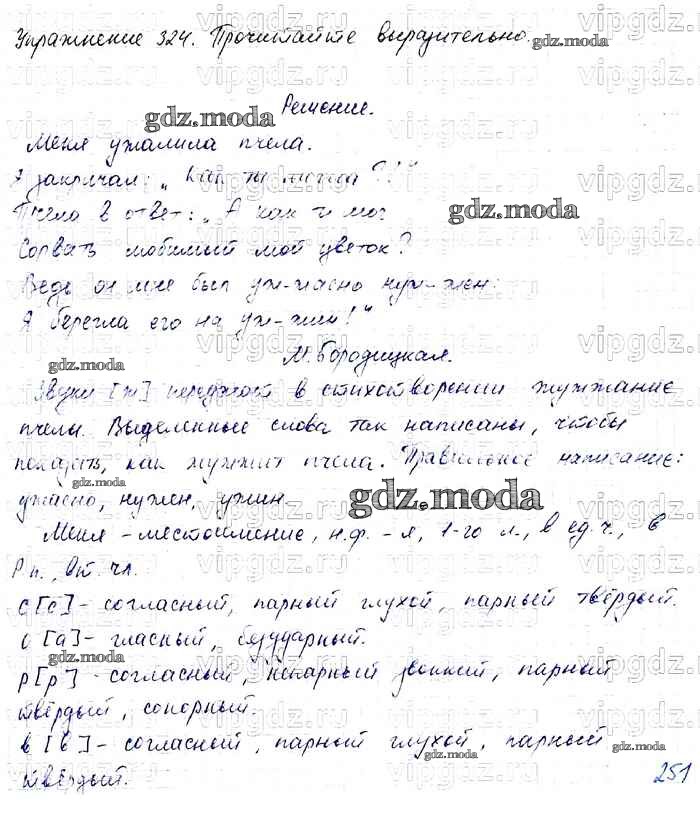 Упражнение 324. Прочитайте выразительно.
gdz.moda
Решение.
gdz.moda
Меня ужалила пчела.
Я закричал: „Как ты могла?!"
Пчела в ответ: „А как ты мог
gdz.moda
Сорвать любимый мой цветок?
Ведь он мне был уж-жасно нуж-жен:
Я берегла его на уж-жин!"
М. Бородицкая.
gdz.moda
Звуки [ж] передают в стихотворении жужжание
пчелы. Выделенные слова так написаны, чтобы
показать, как жужжит пчела. Правильное написание:
ужасно, нужен, ужин.
gdz.moda
Меня - местоимение, н.ф. - я, 1-го л., в ед.ч., в
Р.п.
с [с] - согласный, парный глухой, парный твёрдый.
о [а] - гласный, безударный.
gdz.moda
р [р] - согласный, непарный звонкий, парный
твёрдый, сонорный.
в [в] - согласный, парный глухой, парный
gdz.moda
твёрдый.
251
vipgdz.ru